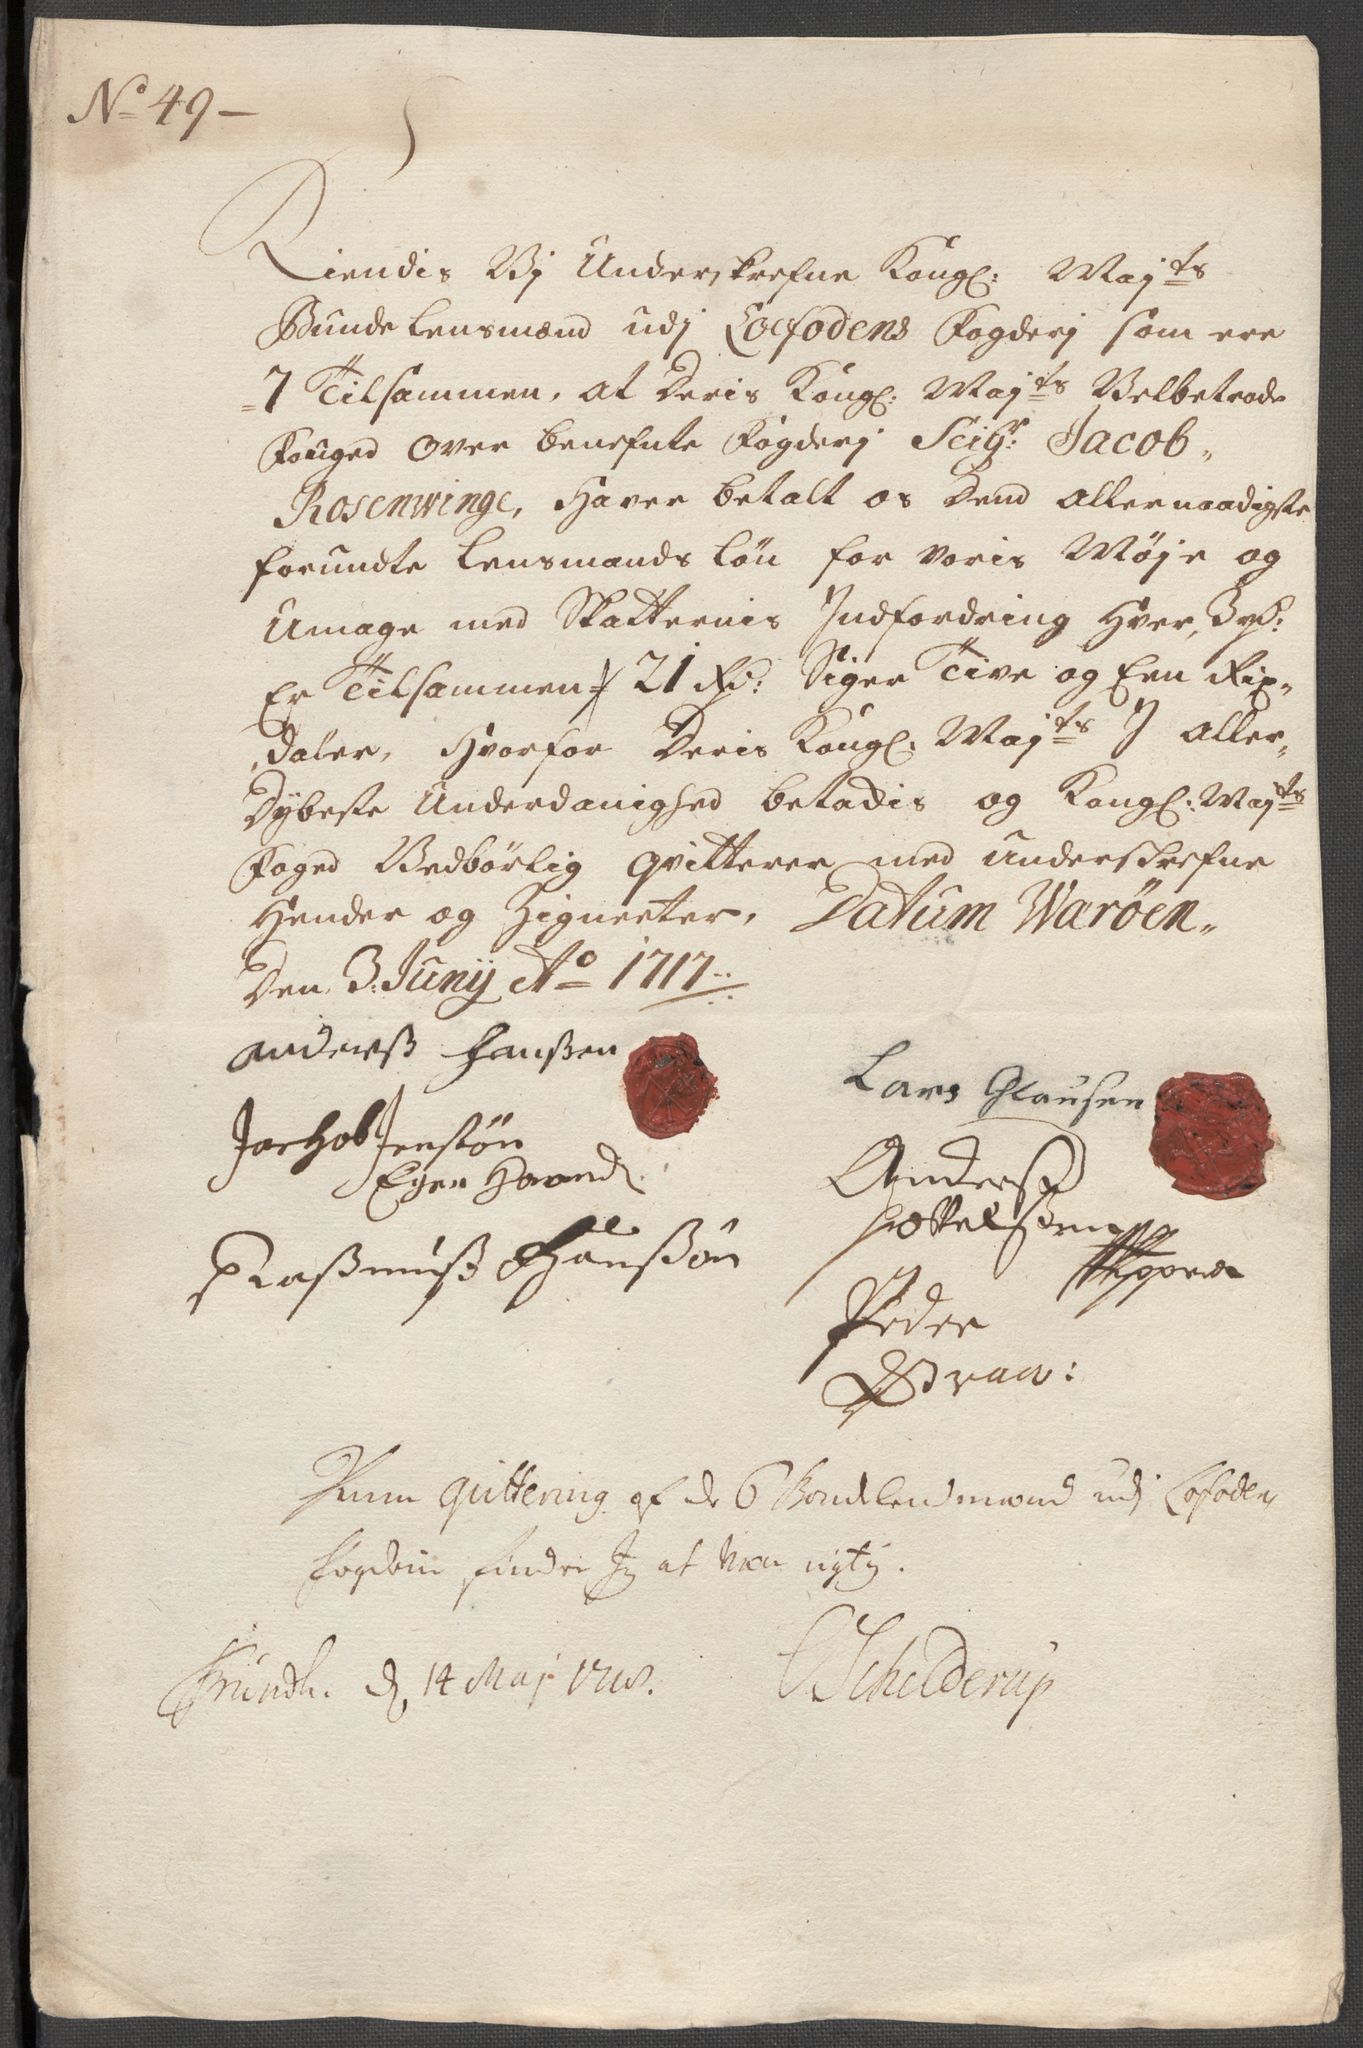 No 49 –
Kiendis Vj Underskrefne Kongl: Majts
Bunde Lensmænd udj Loefodens Fogderj som ere
7 Tilsammen, at Deris Kongl: Majts Velbetrode
Fouged over benefnte Fogderj Seigr: Jacob
Rosenwinge, Hafver betalt os Dend allernaadigste
forundte Lensmands Løn for voris Møje og
Umage med Skatternis Indfordring Hver, 3 rd:
Er Tilsammen 21 Rd: Siger Tive og Een Rix-
daler, Hvorfor Deris Kongl: Majts I aller-
Dybeste Underdanighed betackis og Kongl: Majts
Foged Vedbørlig qvitterer med underskrefne
Hender og Zigneeter, Datum Warøen
Den 3: Junij Ao 1717
anderß Hanßen
Lars Clausen
Jachob Jensøn
Egen Haand
Anderß
Raßmuß Hanßøn
Peder
Qvittering af de 6 Bondelendsmænd udj Lofoden
fogderie finder Jeg at være rigtig.
d, 14 Maj 1718.
Schelderup